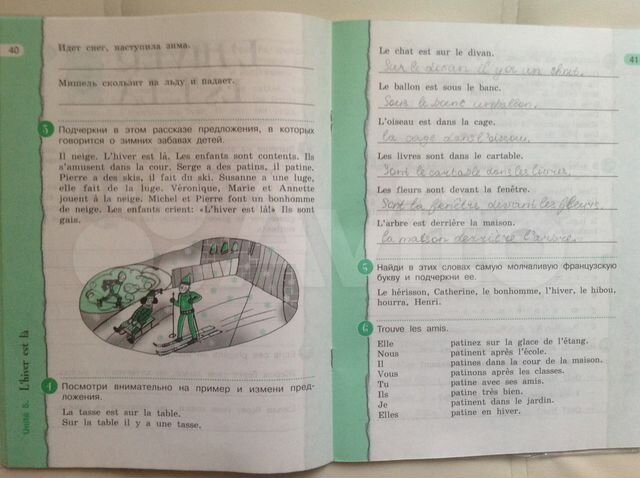 40
Идет снег, наступила зима.
Мишель скользит на льду и падает.
3 Подчеркни в этом рассказе предложения, в которых
говорится о зимних забавах детей.
Il neige. L'hiver est là. Les enfants sont contents. Ils
s'amusent dans la cour. Serge a des patins, il patine.
Pierre a des skis, il fait du ski. Susanne a une luge,
elle fait de la luge. Véronique, Marie et Annette
jouent à la neige. Michel et Pierre font un bonhomme
de neige. Les enfants crient: «L'hiver est là!» Ils sont
gais.
4 Посмотри внимательно на пример и измени пред-
ложения.
La tasse est sur la table.
Sur la table il y a une tasse.
Unité 5. L'hiver est là
41
Le chat est sur le divan.
Sur le divan il y a un chat.
Le ballon est sous le banc.
Sous le banc un ballon.
L'oiseau est dans la cage.
la cage dans l'oiseau.
Les livres sont dans le cartable.
Sont le cartable dans les livres.
Les fleurs sont devant la fenêtre.
Sont la fenêtre devant les fleurs.
L'arbre est derrière la maison.
la maison derrière l'arbre.
5 Найди в этих словах самую молчаливую французскую
букву и подчеркни ее.
Le hérisson, Catherine, le bonhomme, l'hiver, le hibou,
hourra, Henri.
6 Trouve les amis.
Elle patinez sur la glace de l'étang.
Nous patinent après l'école.
Il patines dans la cour de la maison.
Vous patinons après les classes.
Tu patine avec ses amis.
Ils patine très bien.
Je patinent dans le jardin.
Elles patine en hiver.